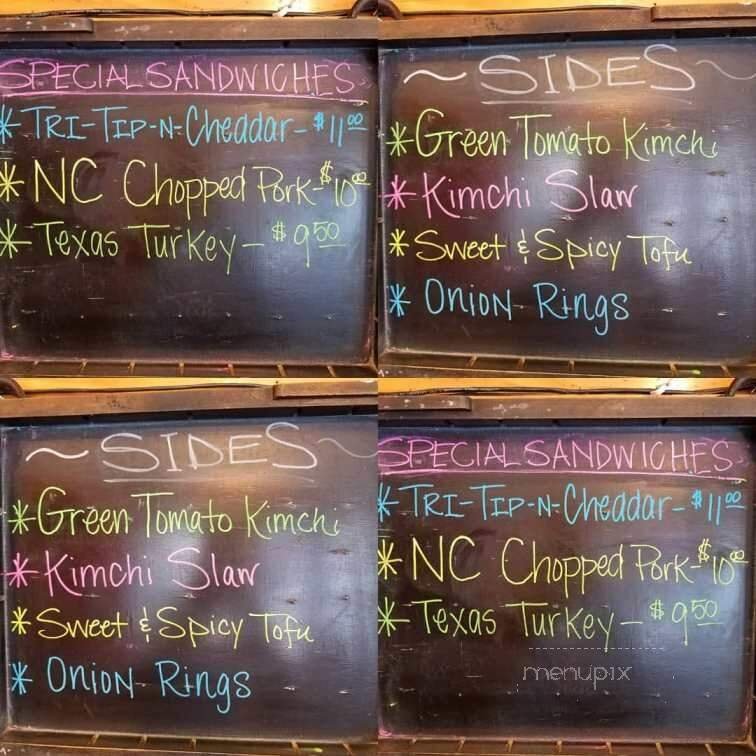 SPECIAL SANDWICHES
* TRI-TIP-N-Cheddar- $11.00
* NC Chopped Pork-$10.00
* Texas Turkey- $9.50
~ SIDES ~
* Green Tomato Kimchi
* Kimchi Slaw
* Sweet & Spicy Tofu
* Onion Rings
~ SIDES ~
* Green Tomato Kimchi
* Kimchi Slaw
* Sweet & Spicy Tofu
* Onion Rings
SPECIAL SANDWICHES
* TRI-TIP-N-Cheddar- $11.00
* NC Chopped Pork-$10.00
* Texas Turkey- $9.50
menupix